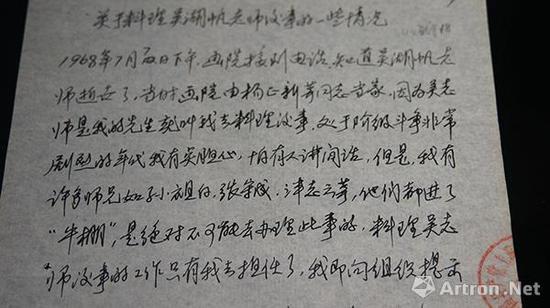 关于料理吴湖帆老师后事的一些情况
1968年7月 日下午，画院接到电话，知道吴湖帆老
师逝世了，当时画院由杨正新等同志当家，因为吴老
师是我的先生就叫我去料理后事，处于阶级斗争非常
剧烈的年代我有些担心，怕有人讲闲话，但是，我有
许多师兄如孙祖白、张守成、谭志云等，他们都进了
“牛棚”，是绝对不可能去办理此事的，料理吴老
师后事的工作只有我去担任了，我即向组织提示
Artron.Net